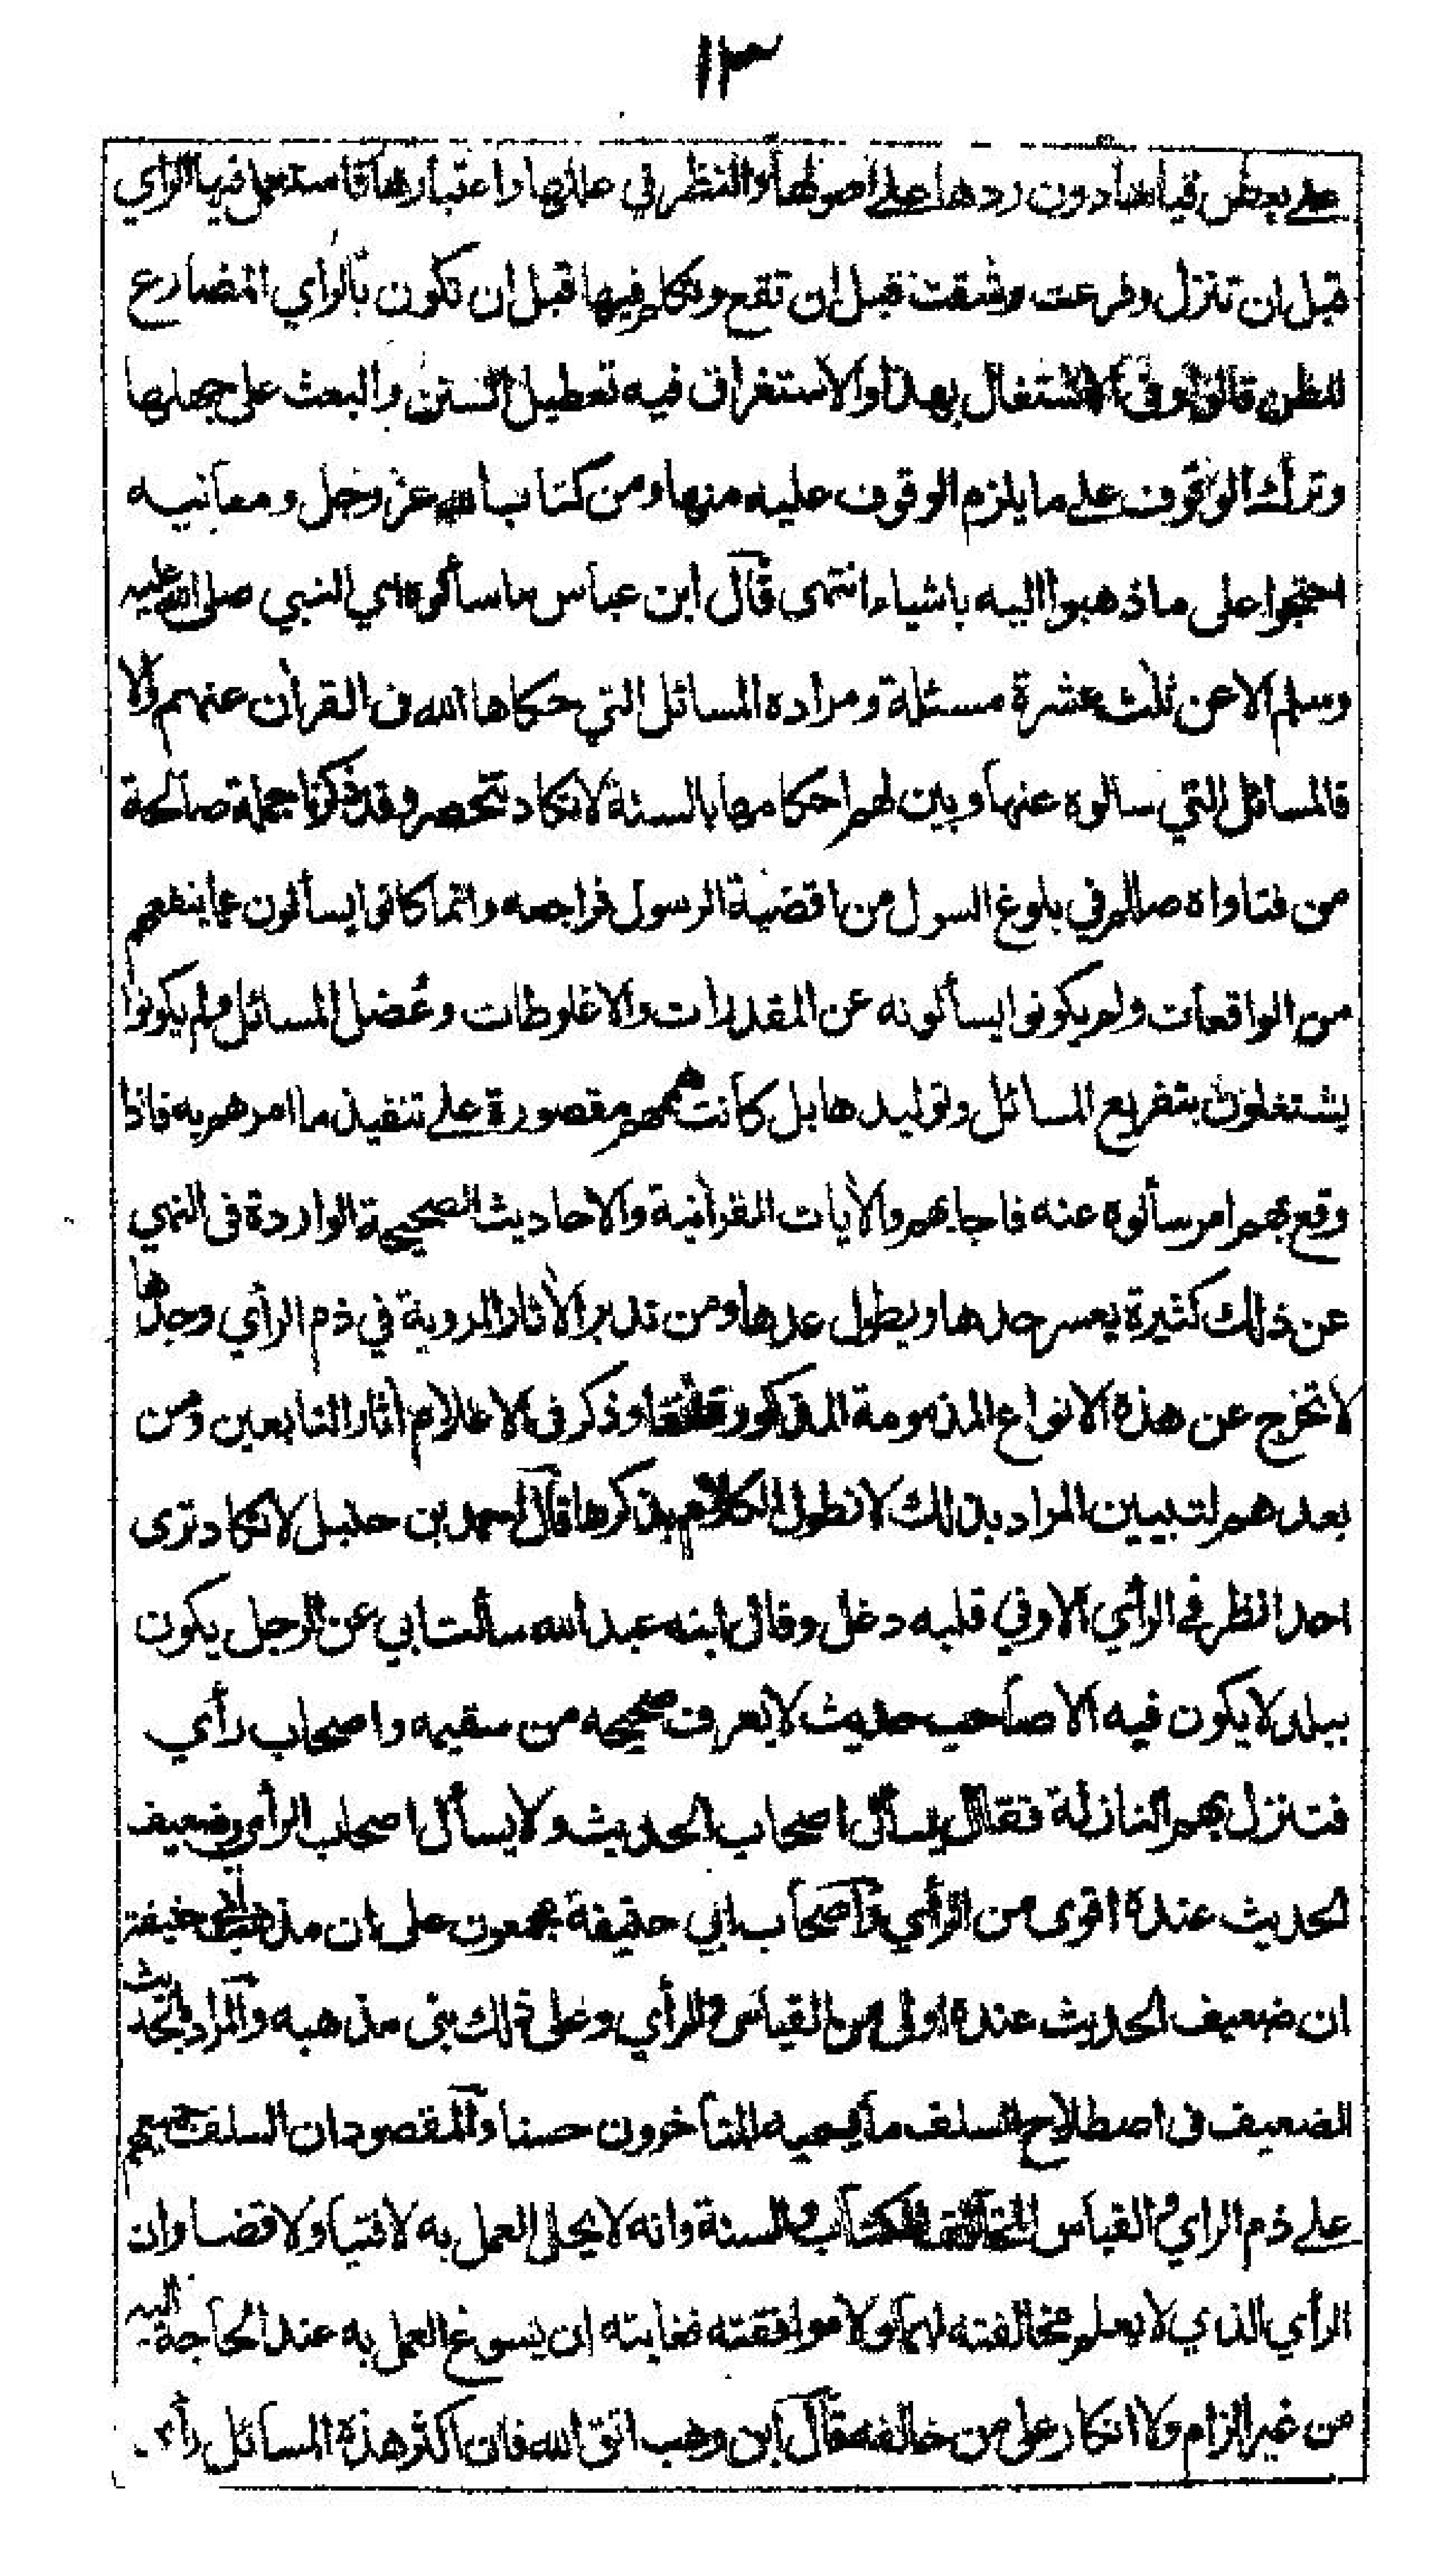 ١٣
على بعض قياسا دون ردها على اصولها والنظر في عللها واعتبارها فاستعمل فيها الراي
قبل ان تنزل وفرعت وشقت قبل ان تقع وتكلم فيها قبل ان تكون بالرأي المضارع
للظن قالوا وفي الاشتغال بهذا والاستغراق فيه تعطيل السنن والبعث على جهلها
وترك الوقوف على ما يلزم الوقوف عليه منها ومن كتاب الله عز وجل ومعانيه
احتجوا على ما ذهبوا اليه باشياء انتهى قال ابن عباس ما سألوه اي النبي صلى الله عليه
وسلم الا عن ثلث عشرة مسئلة ومراده المسائل التي حكاها الله في القرأن عنهم والا
فالمسائل التي سالوه عنها وبين لهم احكامها بالسنة لا تكاد تنحصر وقد ذكرنا جملة صالحة
من فتاواه صللم في بلوغ السول من اقضية الرسول فراجعه وانما كانوا يسألون عما ينفعهم
من الواقعات ولم يكونوا يسألونه عن المقدرات والاغلوطات وعُضل المسائل ولم يكونوا
يشتغلون بتفريع المسائل وتوليدها بل كانت هممهم مقصورة على تنفيذ ما امرهم به فاذا
وقع بهم امر سألوه عنه فاجابهم والأيات القرأنية والاحاديث الصحيحة الواردة في النهي
عن ذلك كثيرة يعسر حدها ويطول عدها ومن تدبر الأثار المروية في ذم الرأي وجدها
لا تخرج عن هذه الانواع المذمومة المذكورة وذكر في الاعلام أثار التابعين ومن
بعدهم لتبيين المراد بذلك لا نطول الكلام بذكرها قال احمد بن حنبل لا تكاد ترى
احدا نظر في الرأي الا وفي قلبه دغل وقال ابنه عبد الله سألت ابي عن الرجل يكون
ببلد لا يكون فيه الا صاحب حديث لا يعرف صحيحه من سقيمه واصحاب رأي
فتنزل بهم النازلة فقال يسأل اصحاب الحديث ولا يسأل اصحاب الرأي وضعيف
الحديث عنده اقوى من الرأي واصحاب ابي حنيفة مجمعون على ان مذهب ابي حنيفة
ان ضعيف الحديث عنده اولى من القياس والرأي وعلى ذلك بنى مذهبه والمراد بالحديث
الضعيف في اصطلاح السلف ما يسميه المتأخرون حسنا والمقصود ان السلف جميعهم
على ذم الراي والقياس المخالف للكتاب والسنة وانه لا يحل العمل به لا فتيا ولا قضا وان
الرأي الذي لا يعلم مخالفته لهما ولا موافقته فغايته ان يسوغ العمل به عند الحاجة اليه
من غير الزام ولا انكار على من خالفه قال ابن وهب اتق الله فان اكثر هذه المسائل رأي